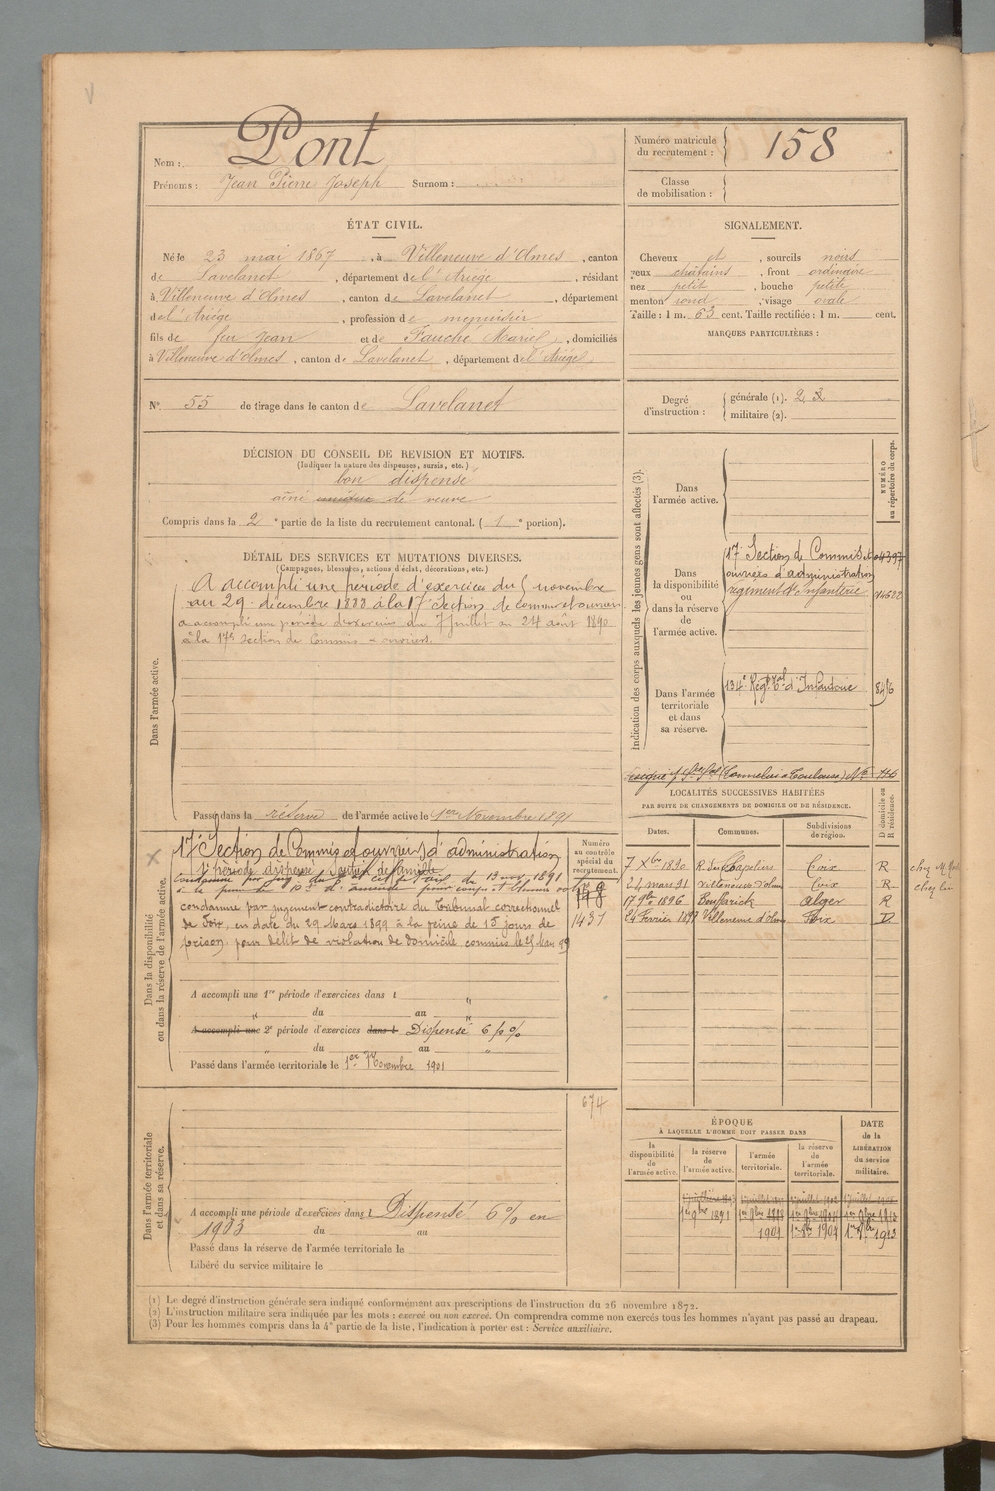 Nom : Pont
Prénoms : Jean Pierre Joseph Surnom :
Numéro matricule du recrutement : 158
Classe de mobilisation :
ÉTAT CIVIL.
Né le 23 mai 1867, à Villeneuve d'Olmes, canton
de Lavelanet, département de l'Ariège, résidant
à Villeneuve d'Olmes, canton de Lavelanet, département
de l'Ariège, profession de menuisier
fils de feu Jean et de Fauché Marie, domiciliés
à Villeneuve d'Olmes, canton de Lavelanet, département de l'Ariège.
N° 55 de tirage dans le canton de Lavelanet
SIGNALEMENT.
Cheveux et, sourcils noirs
yeux châtains, front ordinaire
nez petit, bouche petite
menton rond, visage ovale
Taille : 1 m. 63 cent. Taille rectifiée : 1 m. cent.
MARQUES PARTICULIÈRES :
Degré d'instruction :
générale (1). 2
militaire (2).
DÉCISION DU CONSEIL DE REVISION ET MOTIFS.
(Indiquer la nature des dispenses, sursis, etc.)
bon dispensé
aîné unique de veuve
Compris dans la 2e partie de la liste du recrutement cantonal. (1e portion).
DÉTAIL DES SERVICES ET MUTATIONS DIVERSES.
(Campagnes, blessures, actions d'éclat, décorations, etc.)
Dans l'armée active.
A accompli une période d'exercices du novembre
au 29 décembre 1888 à la 17e Section de commis et ouvriers
a accompli une période d'exercices du 7 juillet au 24 août 1890
à la 17e Section de Commis - ouvriers.
Passé dans la réserve de l'armée active le 1er Novembre 1891
Indication des corps auxquels les jeunes gens sont affectés (3).
NUMÉRO au répertoire du corps.
Dans l'armée active.
Dans la disponibilité ou dans la réserve de l'armée active.
17e Section de Commis et
ouvriers d'administration
régiment d'Infanterie
Dans l'armée territoriale et dans sa réserve.
134e Régt tal d'Infanterie
LOCALITÉS SUCCESSIVES HABITÉES
PAR SUITE DE CHANGEMENTS DE DOMICILE OU DE RÉSIDENCE.
Dates. Communes. Subdivisions de région. D domicile ou R résidence.
7 Xbre 1890 Foix R
24 mars 91 Villeneuve d'Olmes Foix R
17 9bre 1896 Bouffarick Alger R
24 Février 1899 Villeneuve d'Olmes Foix D
Dans la disponibilité ou dans la réserve de l'armée active.
Numéro au contrôle spécial du recrutement.
17e Section de Commis et ouvriers d'administration
1re période dispensé Soutien de famille
178
1437
condamné par jugement contradictoire du Tribunal correctionnel
de Foix, en date du 29 Mars 1899 à la peine de 15 jours de
prison, pour délit de violation de domicile commis le 5 Mars 99
A accompli une 1re période d'exercices dans l "
" du au "
A accompli une 2e période d'exercices dans l Dispensé 6 p %
" du au "
Passé dans l'armée territoriale le 1er Novembre 1901
Dans l'armée territoriale et dans sa réserve.
674
A accompli une période d'exercices dans l Dispensé 6 % en
1903 du au
Passé dans la réserve de l'armée territoriale le
Libéré du service militaire le
ÉPOQUE
À LAQUELLE L'HOMME DOIT PASSER DANS
la disponibilité de l'armée active. la réserve de l'armée active. l'armée territoriale. la réserve de l'armée territoriale.
DATE de la LIBÉRATION du service militaire.
1er 9bre 1891
1901 1er 9bre 1907 1er 9bre 1913
(1) Le degré d'instruction générale sera indiqué conformément aux prescriptions de l'instruction du 26 novembre 1872.
(2) L'instruction militaire sera indiquée par les mots : exercé ou non exercé. On comprendra comme non exercés tous les hommes n'ayant pas passé au drapeau.
(3) Pour les hommes compris dans la 4e partie de la liste, l'indication à porter est : Service auxiliaire.